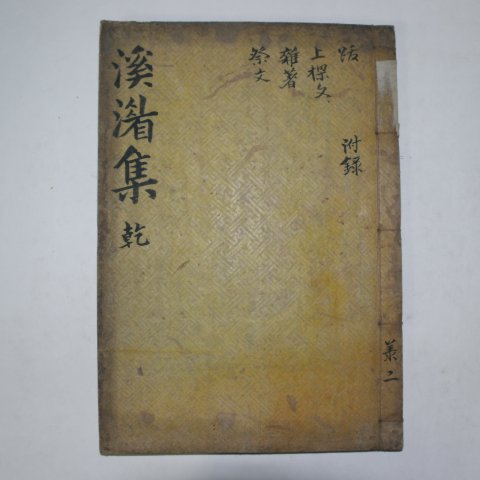 跋 附錄
上樑文
雜著
祭文
溪渚集 乾
二